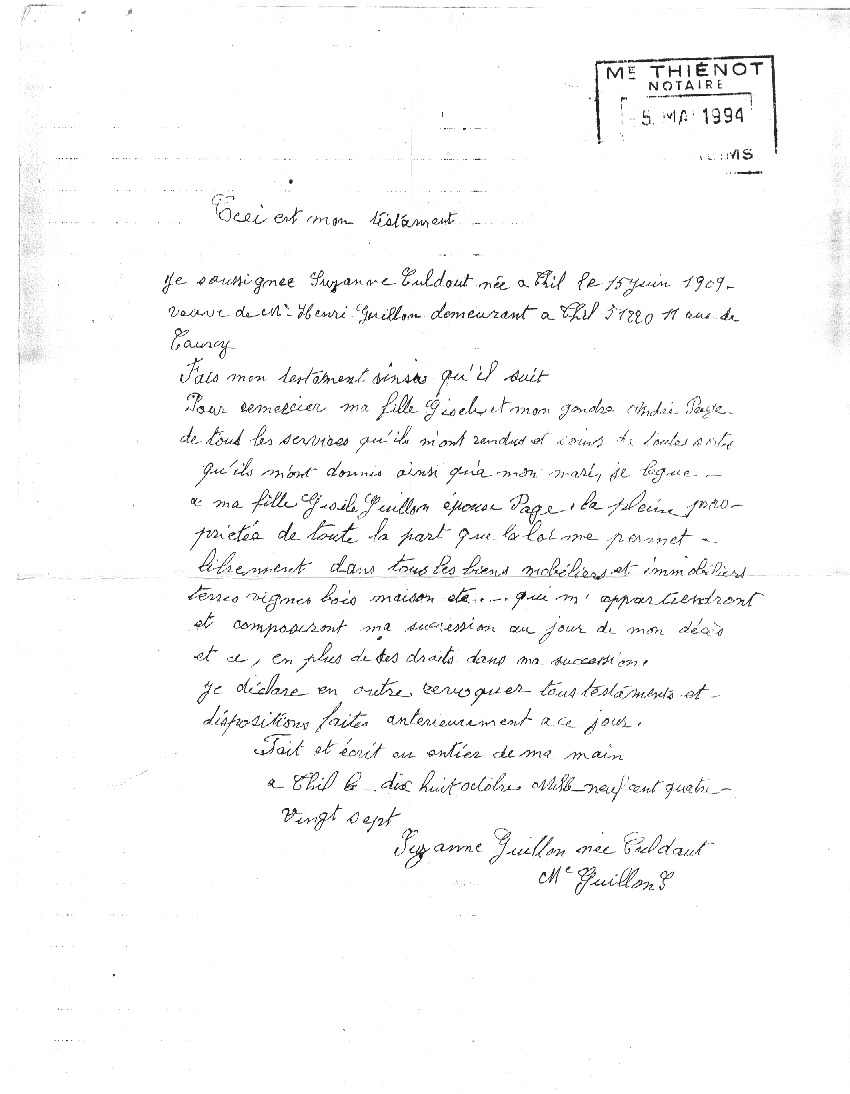 ME THIÉNOT
NOTAIRE
5. MAI 1994
Ceci est mon testament
Je soussignee Suzanne Tuldaut née a Thil le 15 juin 1909-
veuve de Mr Henri Guillon demeurant a Thil 51220 11 rue de
Courcy
Fais mon testament qu'il suit
Pour remercier ma fille Gisele et mon gendre André Page
de tous les services qu'ils m'ont rendus et soins de toutes sorte
qu'ils m'ont donnés ainsi qu'a mon mari, je legue -
a ma fille Gisèle Guillon épouse Page, la pleine pro-
priétés de toute la part que la loi me permet -
librement dans tous les biens mobiliers et immobiliers
terres vignes bois maison etc... qui m'appartiendront
et composeront ma sucession au jour de mon décès
et ce, en plus de ses droits dans ma succession.
Je déclare en outre revoquer tous testaments et -
dispositions faites anterieurement a ce jour.
Fait et écrit en entier de ma main
a Thil le dix huit octobre Mille neuf cent quatre-
vingt sept
Suzanne Guillon née Tuldaut
Me Guillon S